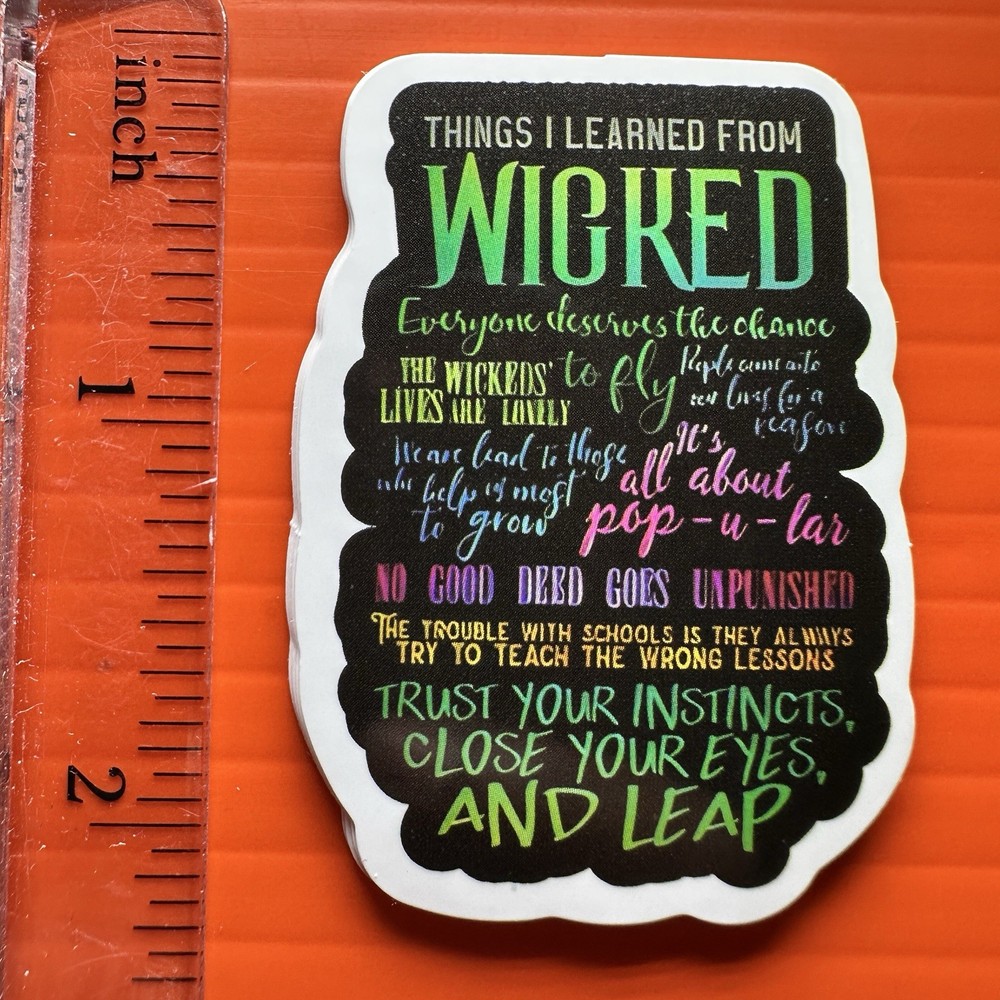 inch
1
2
THINGS I LEARNED FROM
WICKED
Everyone deserves the chance
to fly
THE WICKEDS'
LIVES ARE LONELY
People come into
our lives for a
reason
We are lead to those
who help us most
to grow
It's
all about
pop-u-lar
NO GOOD DEED GOES UNPUNISHED
THE TROUBLE WITH SCHOOLS IS THEY ALWAYS
TRY TO TEACH THE WRONG LESSONS
TRUST YOUR INSTINCTS,
CLOSE YOUR EYES,
AND LEAP